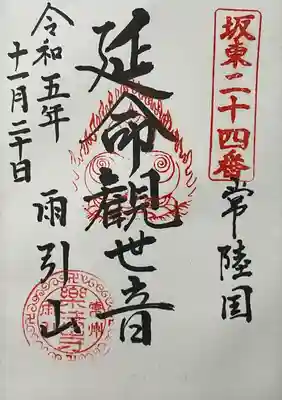 坂東二十四番
常陸国
延命觀世音
雨引山
令和五年
十一月二十日